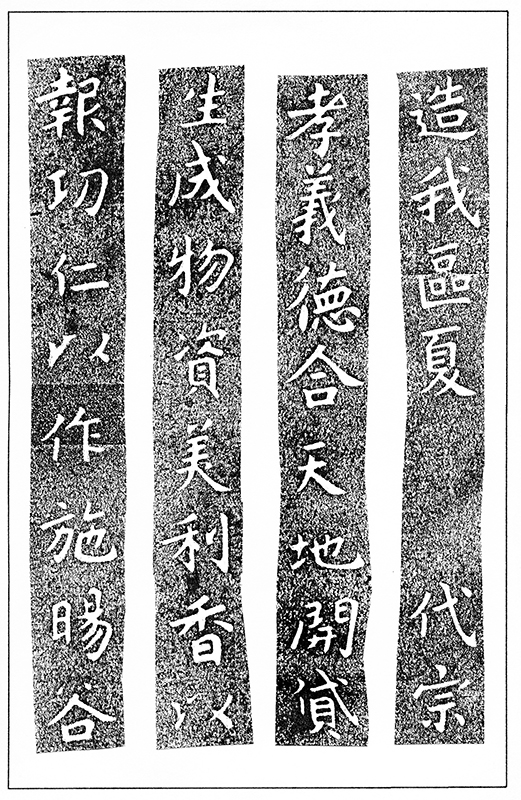 造我區夏　代宗
孝義德合天地開貸
生成物資美利香以
報功仁以作施暘谷